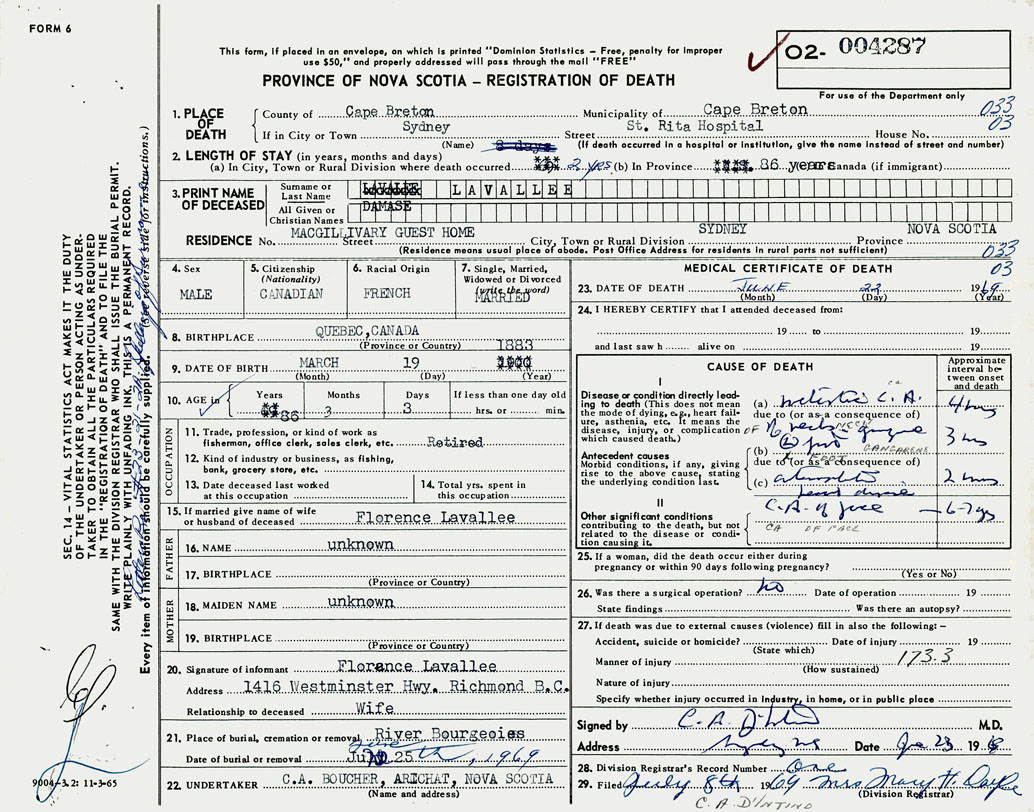 FORM 6
This form, if placed in an envelope, on which is printed "Dominion Statistics – Free, penalty for improper
use $50," and properly addressed will pass through the mail "FREE"
PROVINCE OF NOVA SCOTIA – REGISTRATION OF DEATH
02- 004287
For use of the Department only
033
03
1. PLACE OF DEATH
County of Cape Breton Municipality of Cape Breton
If in City or Town Sydney Street St. Rita Hospital House No.
(Name) 8 days (If death occurred in a hospital or institution, give the name instead of street and number)
2. LENGTH OF STAY (in years, months and days)
(a) In City, Town or Rural Division where death occurred 2 yrs (b) In Province 86 years Canada (if immigrant)
3. PRINT NAME OF DECEASED
Surname or Last Name LAVALLEE
All Given or Christian Names DAMASE
RESIDENCE No. MACGILLIVARY GUEST HOME Street City, Town or Rural Division SYDNEY Province NOVA SCOTIA
(Residence means usual place of abode. Post Office Address for residents in rural parts not sufficient)
033
03
4. Sex
MALE
5. Citizenship
(Nationality)
CANADIAN
6. Racial Origin
FRENCH
7. Single, Married,
Widowed or Divorced
(write the word)
MARRIED
8. BIRTHPLACE QUEBEC,CANADA
(Province or Country)
1883
9. DATE OF BIRTH MARCH 19
(Month) (Day) (Year)
10. AGE in
Years Months Days If less than one day old
86 3 3 hrs. or min.
OCCUPATION
11. Trade, profession, or kind of work as
fisherman, office clerk, sales clerk, etc. Retired
12. Kind of industry or business, as fishing,
bank, grocery store, etc.
13. Date deceased last worked
at this occupation
14. Total yrs. spent in
this occupation
15. If married give name of wife
or husband of deceased Florence Lavallee
FATHER
16. NAME unknown
17. BIRTHPLACE
(Province or Country)
MOTHER
18. MAIDEN NAME unknown
19. BIRTHPLACE
(Province or Country)
20. Signature of informant Florance Lavallee
Address 1416 Westminster Hwy. Richmond B.C.
Relationship to deceased Wife
21. Place of burial, cremation or removal River Bourgeoies
Date of burial or removal June 25th, 1969
22. UNDERTAKER C.A. BOUCHER, ARICHAT, NOVA SCOTIA
(Name and address)
MEDICAL CERTIFICATE OF DEATH
23. DATE OF DEATH JUNE 22 1969
(Month) (Day) (Year)
24. I HEREBY CERTIFY that I attended deceased from:
19 to 19
and last saw h alive on 19
CAUSE OF DEATH
Approximate
interval be-
tween onset
and death
I
Disease or condition directly lead-
ing to death (This does not mean
the mode of dying, e.g., heart fail-
ure, asthenia, etc. It means the
disease, injury, or complication
which caused death.)
(a) C.A.
due to (or as a consequence of)
OF NECK
Antecedent causes
Morbid conditions, if any, giving
rise to the above cause, stating
the underlying condition last.
(b) foot
GANGRENE
FOOT
due to (or as a consequence of)
(c)
II
Other significant conditions
contributing to the death, but not
related to the disease or condi-
tion causing it.
C.A. of face
CA OF FACE
25. If a woman, did the death occur either during
pregnancy or within 90 days following pregnancy?
(Yes or No)
26. Was there a surgical operation? No Date of operation 19
State findings Was there an autopsy?
27. If death was due to external causes (violence) fill in also the following: –
Accident, suicide or homicide? Date of injury 19
(State which)
Manner of injury 173.3
(How sustained)
Nature of injury
Specify whether injury occurred in Industry, in home, or in public place
Signed by C. A. D'Intino M.D.
Address Sydney NS Date June 23 19
28. Division Registrar's Record Number
29. Filed July 8th 1969 Mrs Mary H.
(Division Registrar)
C. A. D'INTINO
SEC. 14 – VITAL STATISTICS ACT MAKES IT THE DUTY
OF THE UNDERTAKER OR PERSON ACTING AS UNDER-
TAKER TO OBTAIN ALL THE PARTICULARS REQUIRED
IN THE "REGISTRATION OF DEATH" AND TO FILE THE
SAME WITH THE DIVISION REGISTRAR WHO SHALL ISSUE THE BURIAL PERMIT.
WRITE PLAINLY WITH UNFADING INK. THIS IS A PERMANENT RECORD.
Every item of information should be carefully supplied. (See reverse side for instructions.)
9004-3.2: 11-3-65